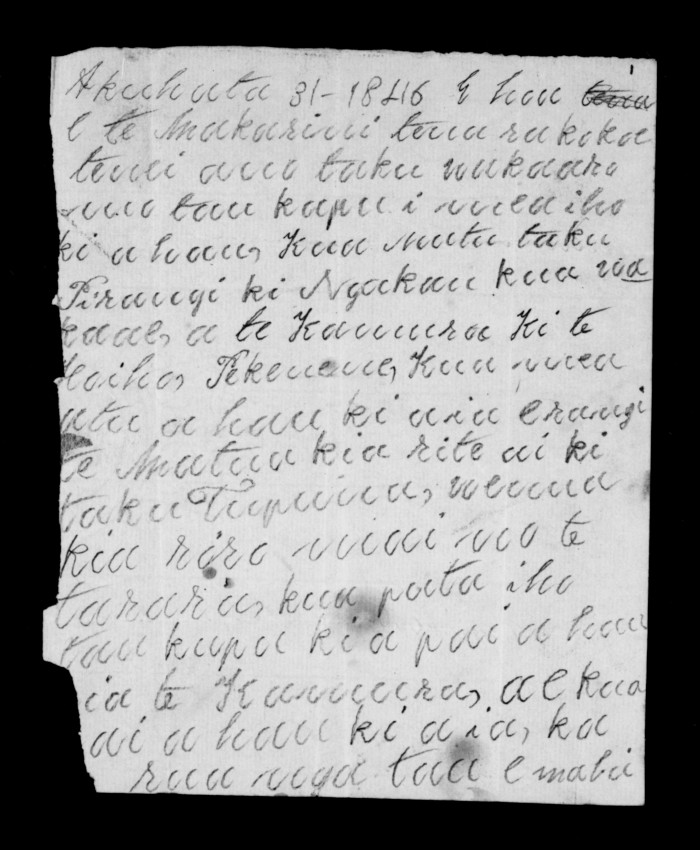 Akuhata 31-1846 E hoa tena
E te Makarini tena ra kokoe
tenei ano taku wakaaro
mo tau kupu i mea iho
ki ahau, Kua mutu taku
Pirangi ki Ngakau kua wa
kaae, a te Kamura Ki te
Hoiho, Pekeneme, Kua mea
atu a hau ki aia erangi
te Matua kia rite ai ki
taku Tupuna, wenua
kia riro mai mo te
tarara, kua pata iho
tau kupu kia pai a hau
ia te Kamura, ae kua
ai a hau ki aia, ka
rua nga tau e mahi